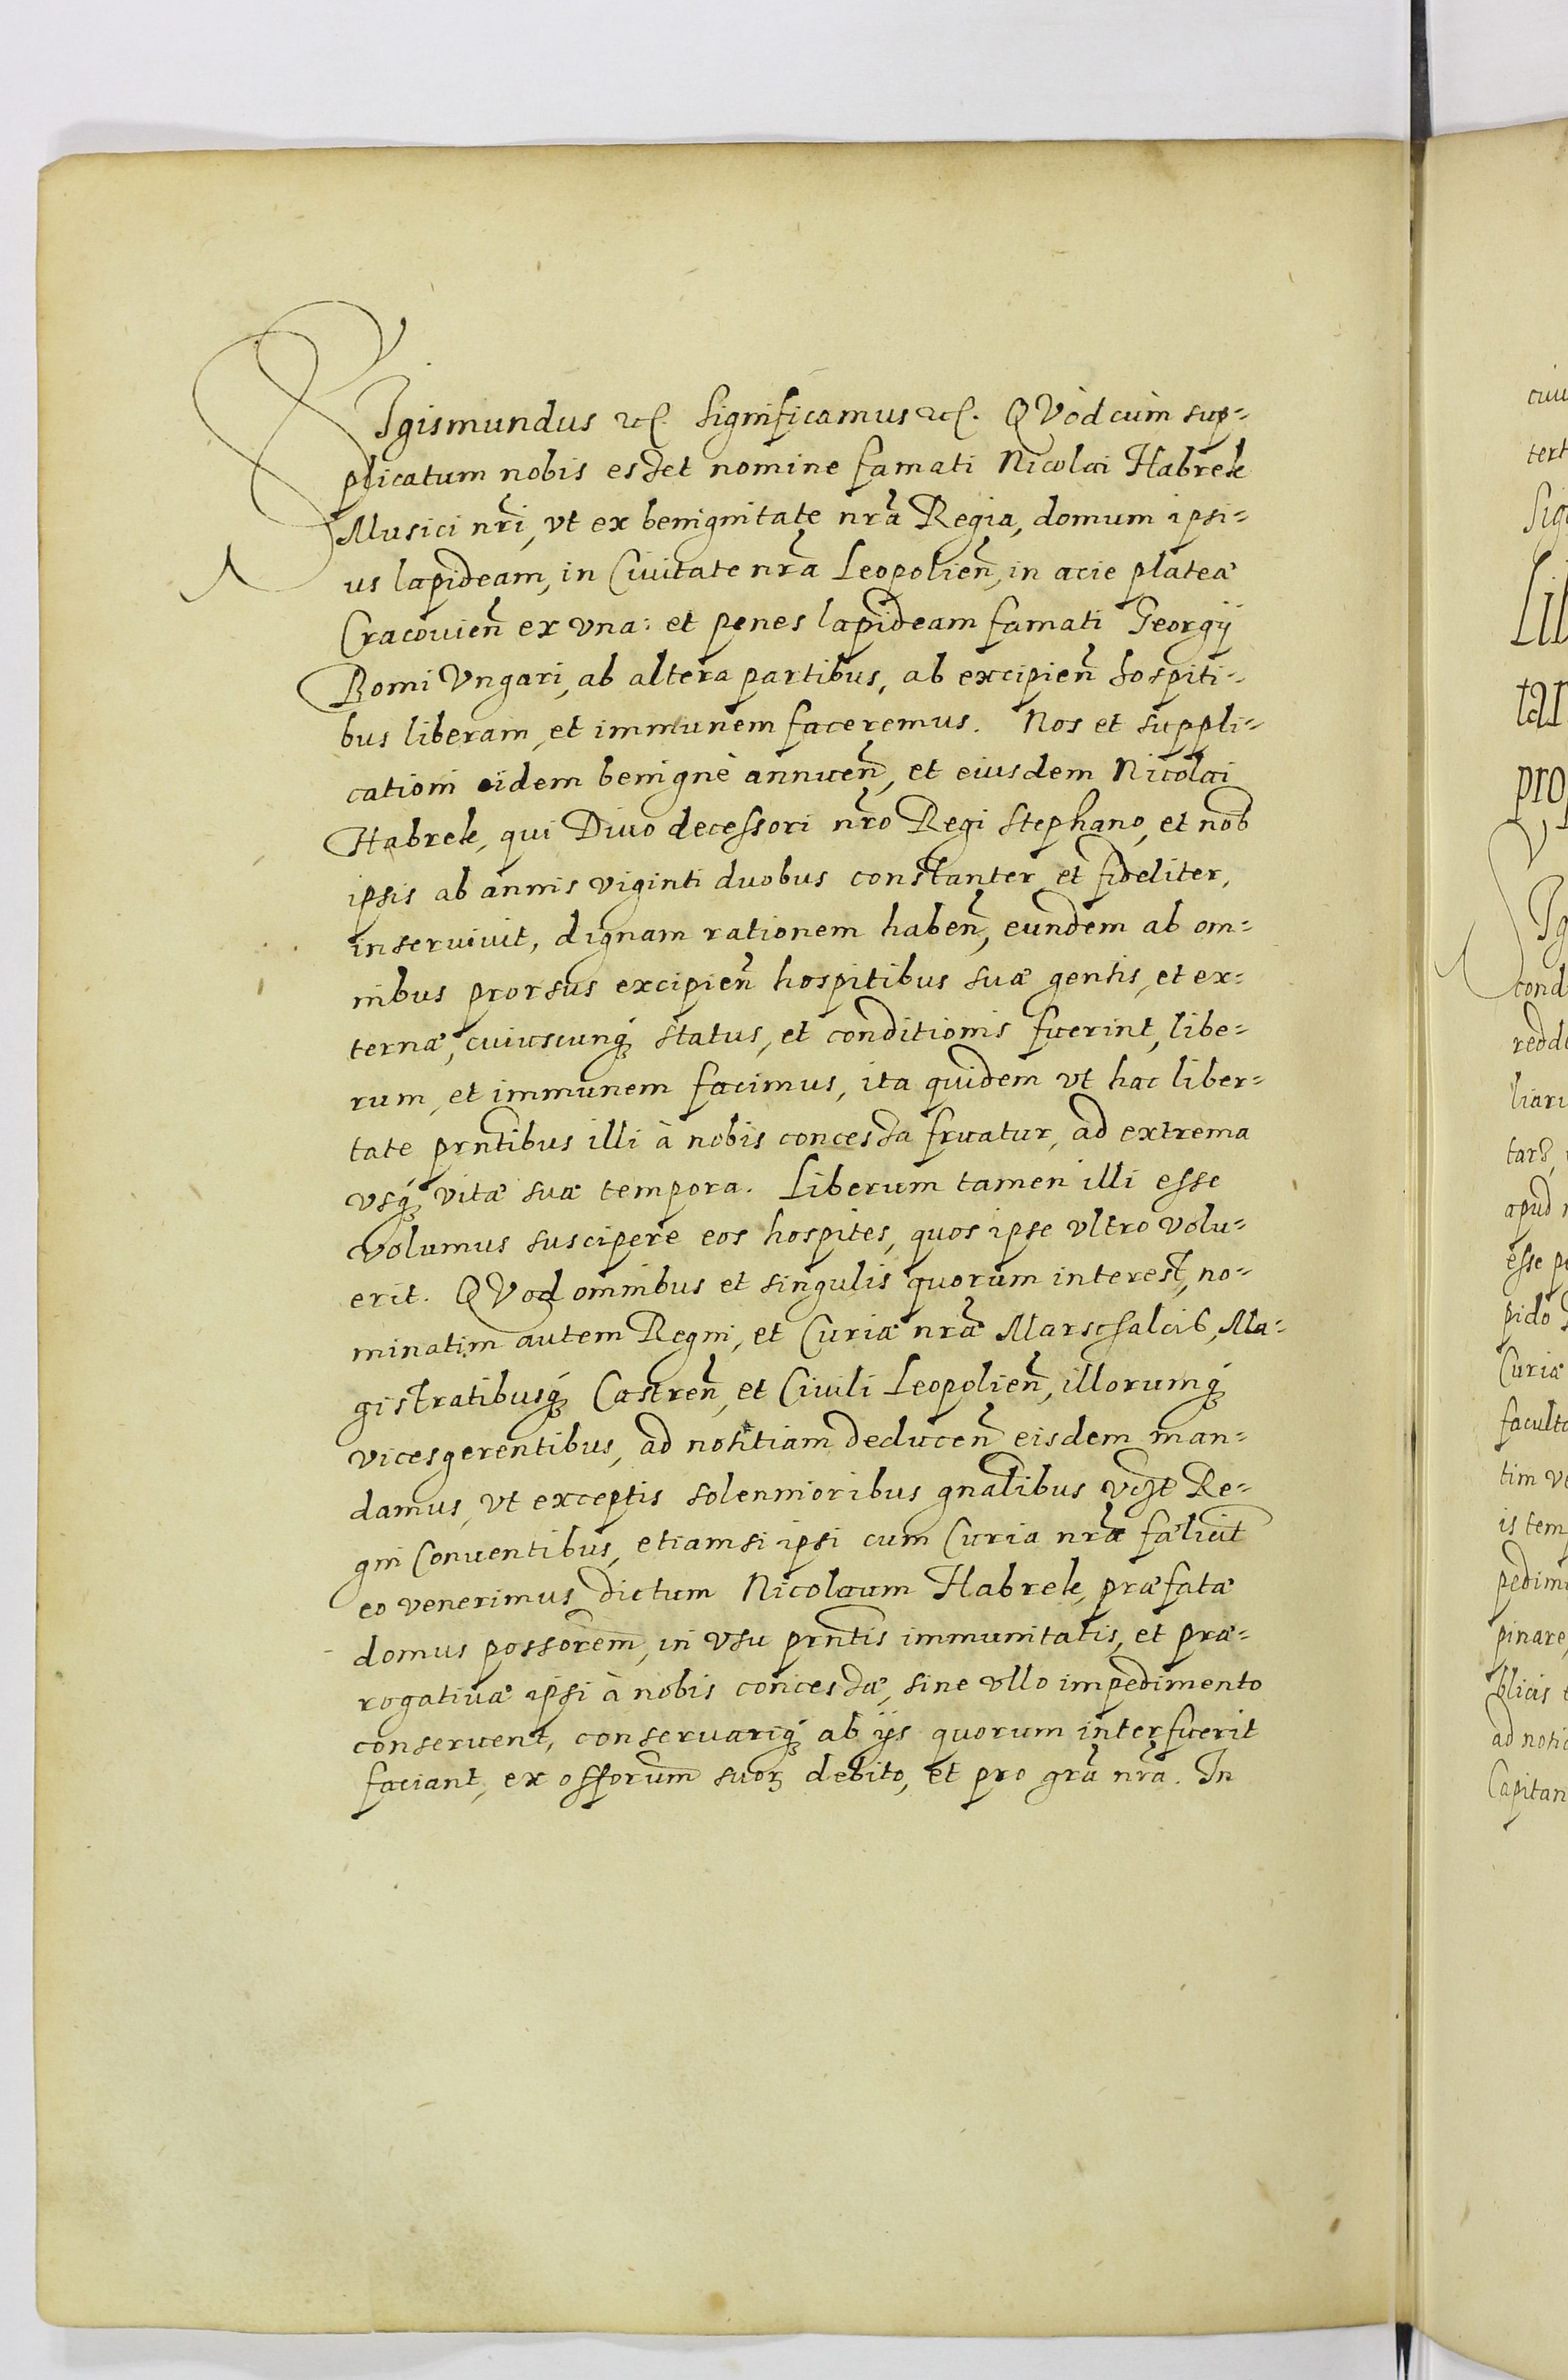 SIgismundus etc. Significamus etc. QVòd cùm sup=
plicatum nobis esset nomine famati Nicolai Habrek
Musici nr̃i, vt ex benignitate nr̃a Regia, domum ipsi=
us lapideam, in Ciuitate nr̃a Leopolień, in acie plateæ
Cracouień ex vna: et penes lapideam famati Georgij
Bomi Vngari, ab altera partibus, ab excipień hospiti=
bus liberam, et immunem faceremus. Nos et suppli=
cationi eidem benignè annueń, et eiusdem Nicolai
Habrek, qui Diuo decessori nr̃o Regi Stephano, et nob
ipsis ab annis viginti duobus constanter et fideliter,
inseruiuit, dignam rationem habeń, eundem ab om=
nibus prorsus excipień hospitibus suæ gentis, et ex=
ternæ, cuiuscunq́ status, et conditionis fuerint, libe=
rum, et immunem facimus, ita quidem vt hac liber=
tate prñtibus illi à nobis concessa fruatur, ad extrema
vsq́ vitæ suæ tempora. Liberum tamen illi esse
volumus suscipere eos hospites, quos ipse vltro volu=
erit. QVod omnibus et singulis quorum interest, no=
minatim autem Regni, et Curiæ nr̃æ Marschalcis, Ma=
gistratibusq́ Castreń, et Ciuili Leopolień, illorumq́
vicesgerentibus, ad notitiam deduceń eisdem man=
damus, vt exceptis solennioribus gñalibus vczt Re=
gni Conuentibus, etiamsi ipsi cum Curia nr̃a fælicit
eo venerimus, dictum Nicolaum Habrek, præfatæ
domus possorem, in vsu prñtis immunitatis, et præ=
rogatiuæ ipsi à nobis concessæ, sine vllo impedimento
conseruent, conseruariq́ ab ijs quorum interfuerit
faciant, ex offorum suorꝫ debito, et pro gr̃a nr̃a. In
ciui
tert
Sig
Lib
tar
pro
Ig
cond
redde
liari
tarꝫ,
apud
esse p
pido
Curiæ
faculta
tim ve
is tem
pedim
pinare,
blicis
ad notic
Capitan